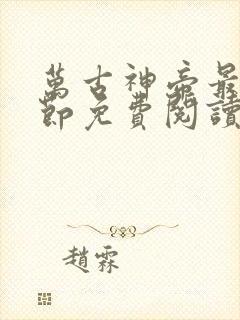 萬古神帝最
節免費閱讀
趙霖